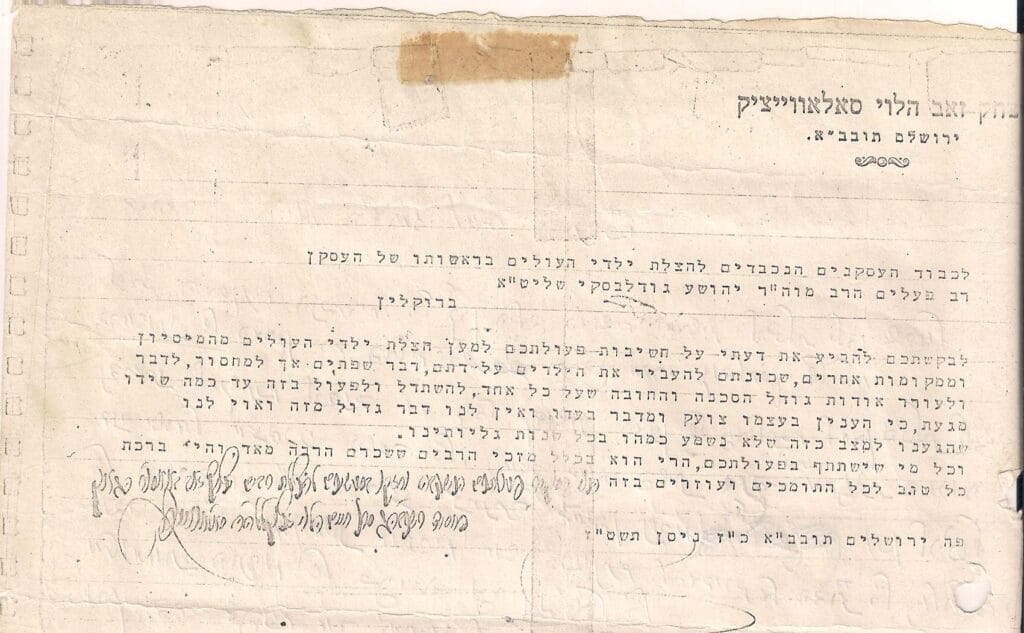 יצחק-זאב הלוי סאלאווייציק
ירושלם תובב"א.
לכבוד העסקנים הנכבדים להצלת ילדי העולים בראשותו של העסקן
רב פעלים הרב מוה"ר יהושע גודלבסקי שליט"א
ברוקלין
לבקשתכם להגיע את דעתי על חשיבות פעולתכם למען הצלת ילדי העולים מהמיסיון
וממקומות אחרים,שכונתם להעביר את הילדים על דתם,דבר שפתים אך למחסור,לדבר
ולעורר אודות גודל הסכנה והחובה שעל כל אחד,להשתדל ולפעול בזה עד כמה שידו
מגעת,כי הענין בעצמו צועק ומדבר בעדו ואין לנו דבר גדול מזה ואוי לנו
שהגענו למצב כזה שלא נשמע כמהו בכל שנות גליותינו.
וכל מי שישתתף בפעולתכם,הרי הוא בכלל מזכי הרבים ששכרם הרבה מאד והי' ברכת
כל טוב לכל התומכים ועוזרים בזה
פה ירושלים תובב"א כ"ז ניסן תשט"ז